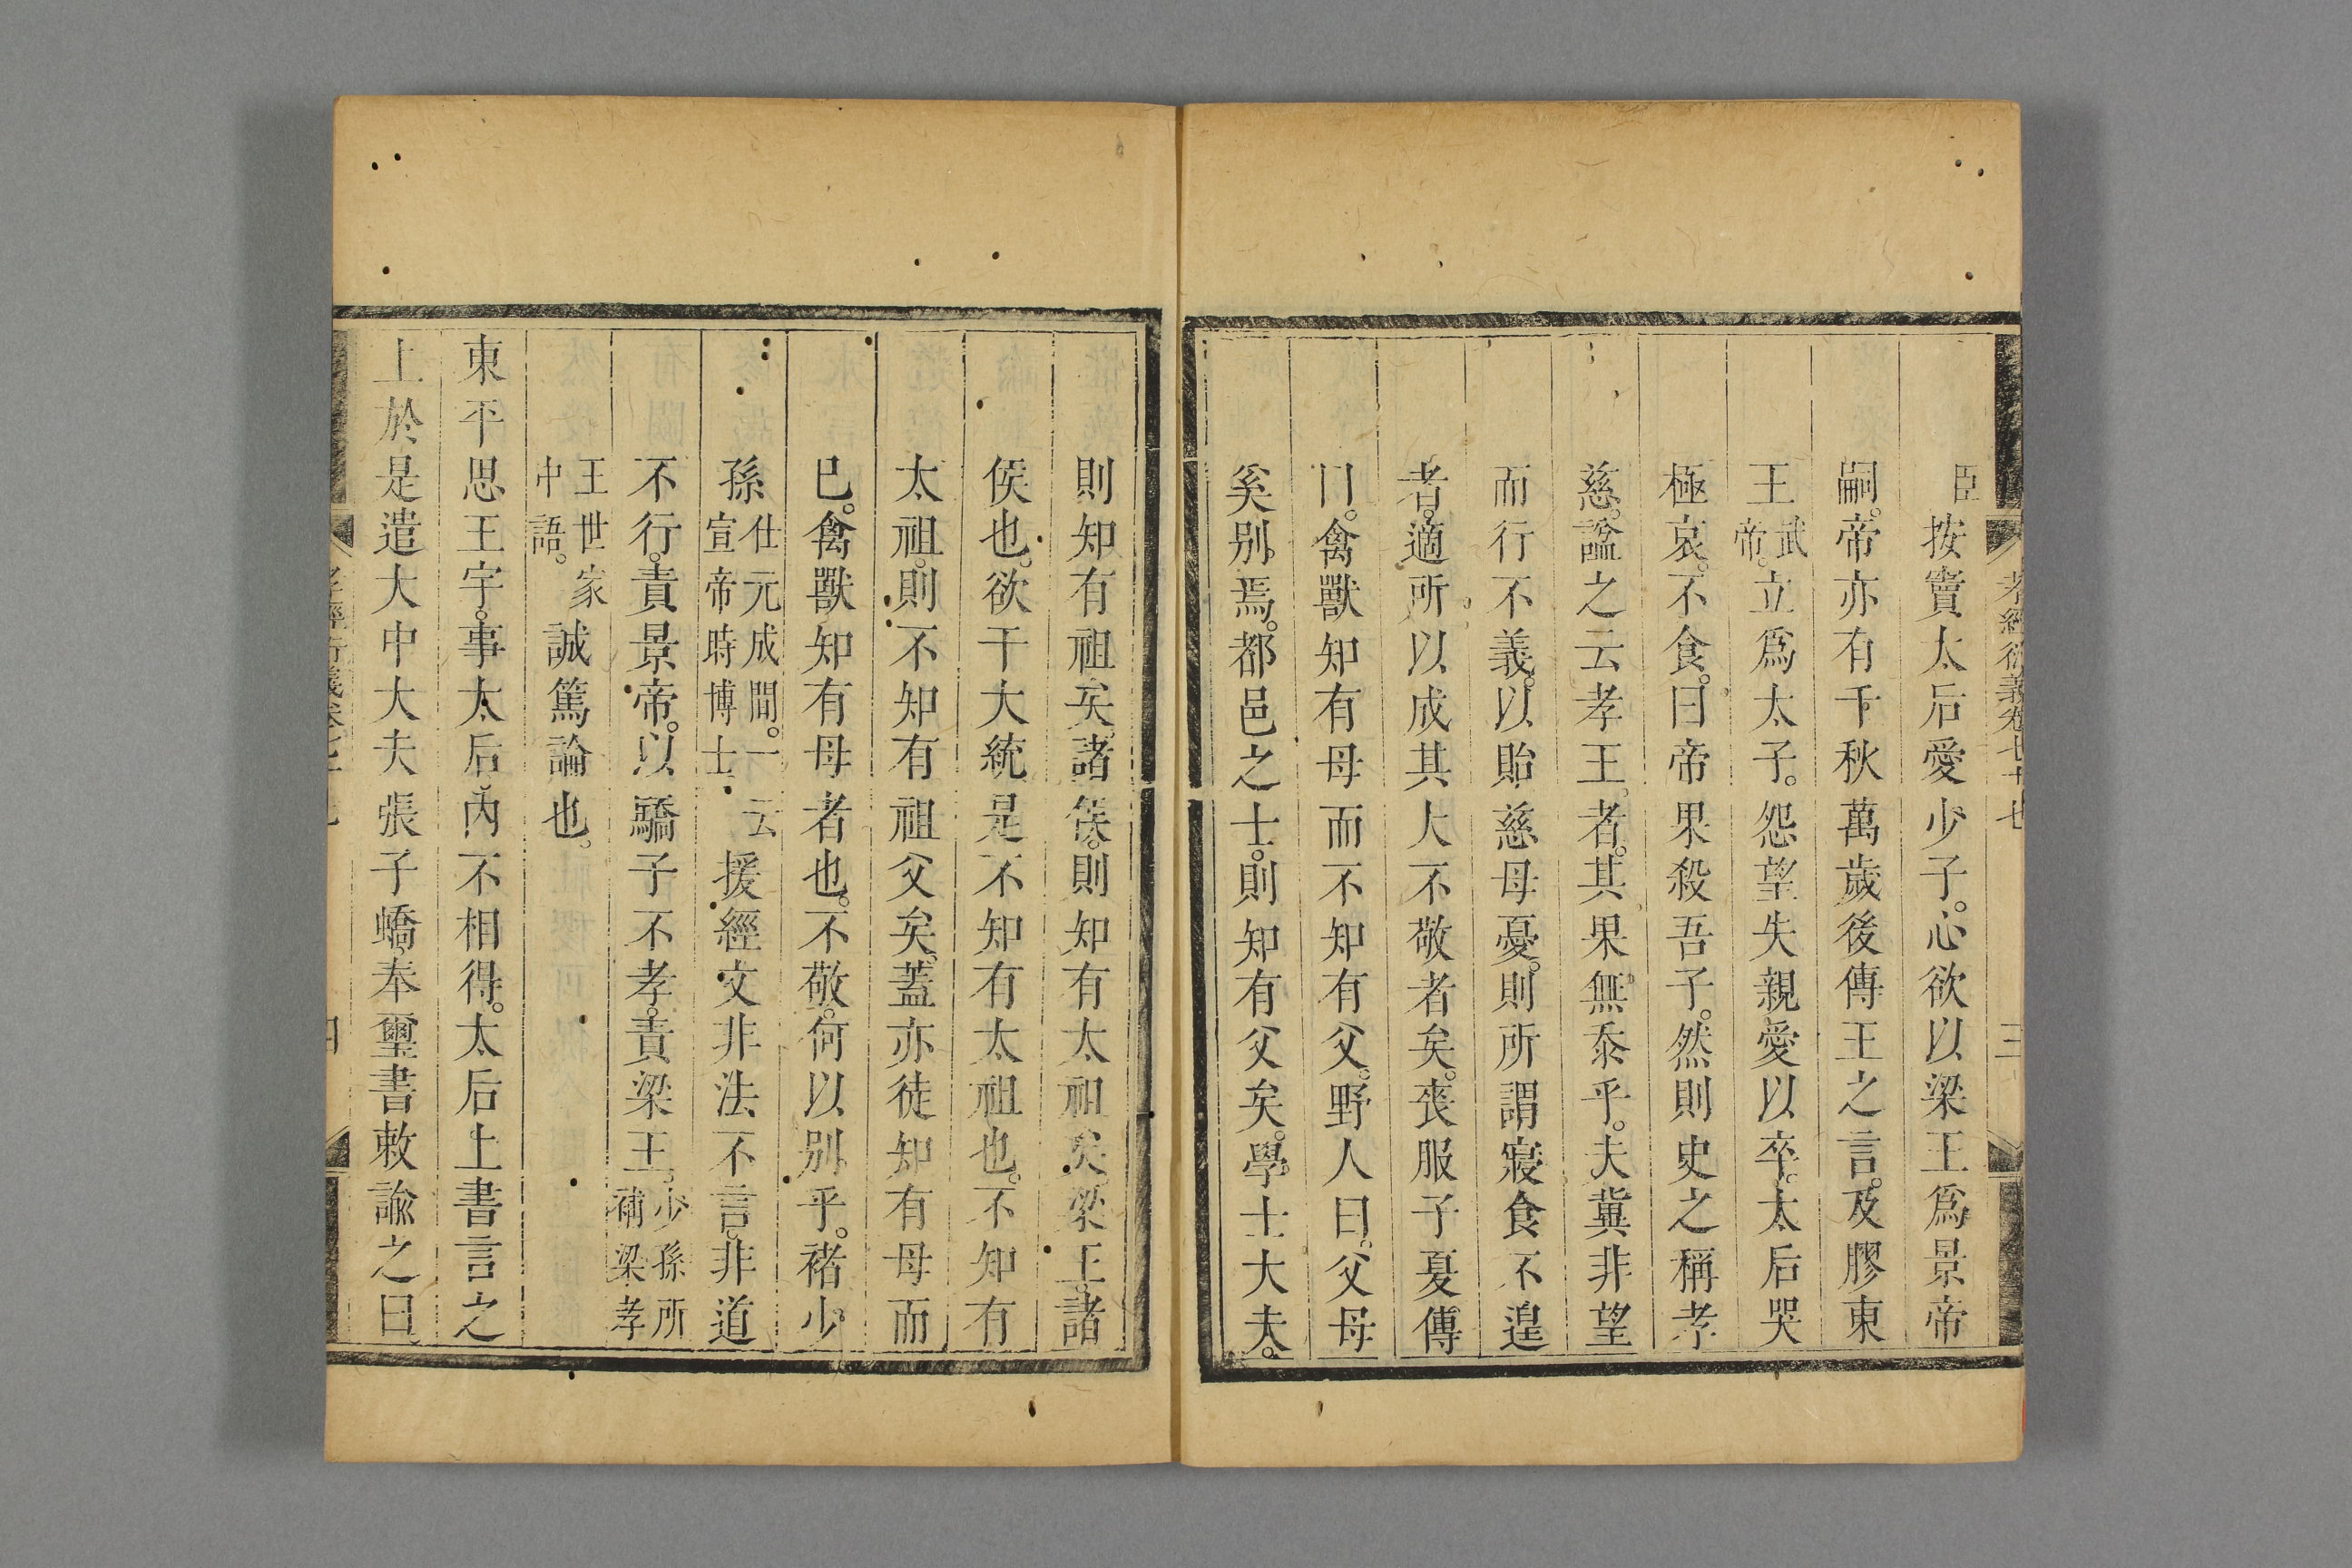 孝經衍義卷七十七　三
臣按竇太后愛少子。心欲以梁王爲景帝
嗣。帝亦有千秋萬歲後傳王之言。及膠東
王武帝。立爲太子。怨望失親愛以卒。太后哭
極哀。不食。曰帝果殺吾子。然則史之稱孝
慈。諡之云孝王者。其果無忝乎。夫冀非望
而行不義。以貽慈母憂。則所謂寢食不遑
者。適所以成其大不敬者矣。喪服子夏傳
曰。禽獸知有母而不知有父。野人曰。父母
奚別焉。都邑之士。則知有父矣。學士大夫。
則知有祖矣。諸侯。則知有太祖矣。梁王。諸
侯也。欲干大統。是不知有太祖也。不知有
太祖。則不知有祖父矣。蓋亦徒知有母而
已。禽獸知有母者也。不敬。何以別乎。褚少
孫仕元成間。一云宣帝時博士援經文非法不言。非道
不行。責景帝。以驕子不孝。責梁王。少孫所補梁孝
王世家中語。誠篤論也。
東平思王宇。事太后。內不相得。太后上書言之
上於是遣大中大夫張子蟜奉璽書敕諭之曰